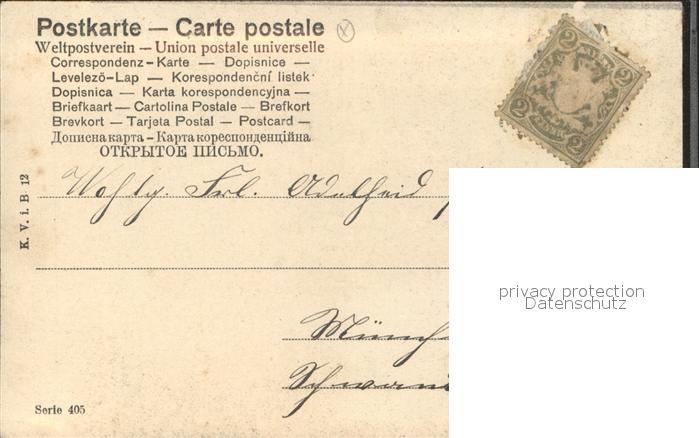 Postkarte — Carte postale
Weltpostverein — Union postale universelle
Correspondenz-Karte — Dopisnice —
Levelező-Lap — Korespondenční listek
Dopisnica — Karta korespondencyjna —
Briefkaart — Cartolina Postale — Brefkort
Brevkort — Tarjeta Postal — Postcard —
Дописна карта - Карта кореспонденційна
ОТКРЫТОЕ ПИСЬМО.
2 2
2 2
K. V. i. B. 12
Wohlg. Frl. Adelheid
privacy protection
Datenschutz
Münch
Serie 405